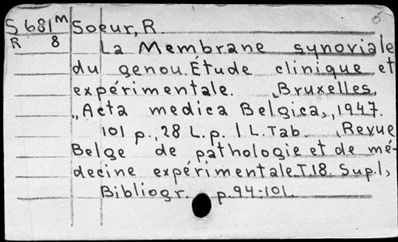 S 681 M Soeur, R.
R 8
La Membrane synoviale
du genou. Étude clinique et
expérimentale. Bruxelles,
„Acta medica Belgica„, 1947.
101 p., 28 L.p. 1 L. Tab. Revue
Belge de pathologie et de mé-
decine expérimentale. T.18. Supl,
Bibliogr. p. 94-101.